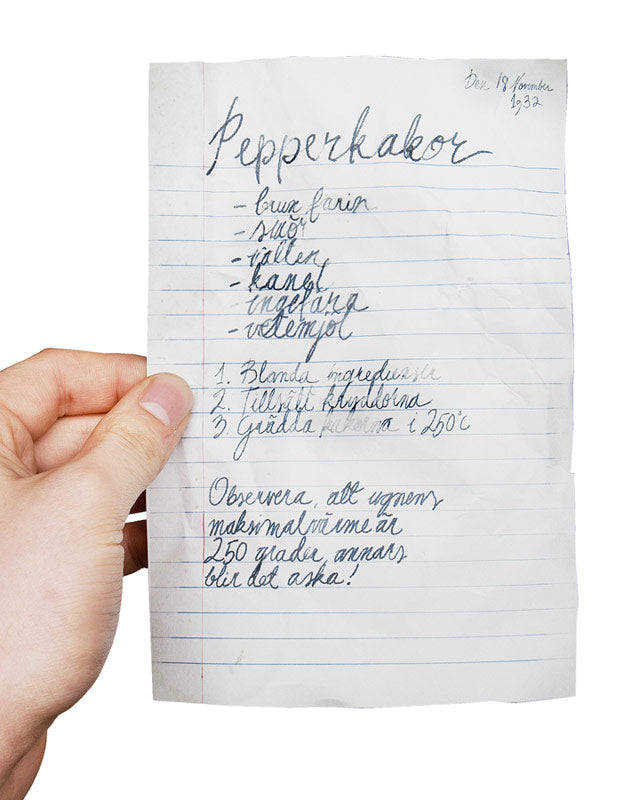 Den 18 November
1932
Pepperkakor
- brun farin
- smör
- vatten
- kanel
ingefära
- vetemjöl
1. Blanda ingredienser
2. Tillsätt kryddorna
3. Grädda kakorna i 250°c
Observera, att ugnens
maksimalvärme är
250 grader, annars
blir det aska!